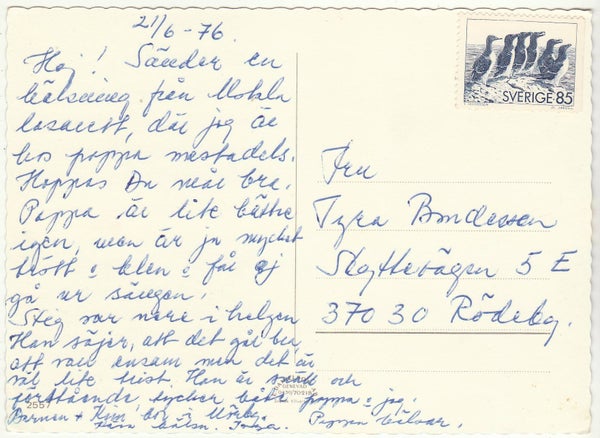 21/6 -76.
Hej! Sänder en
hälsning från
lasarett, där jag är
hos pappa mestadels.
Hoppas Du mår bra.
Pappa är lite bättre
igen, men är ju mycket
trött o klen o får ej
gå ur sängen.
Stig var nere i helgen
Han säjer, att det går bra
att vara ensam men det är
väl lite trist. Han är snäll och
förstående tycker både pappa o jag.
Barnen +
Pappa hälsar.
SVERIGE 85
Fru
Tyra
Slättevägen 5 E
370 30 Rödeby.
2557